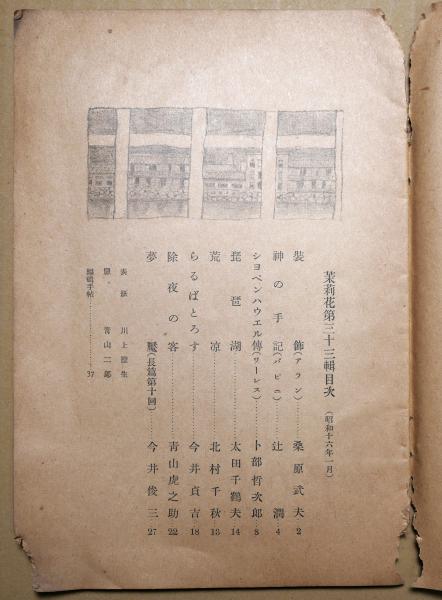 茉莉花第三十三輯目次（昭和十六年一月）
裝飾（アラン）……桑原武夫 2
神の手記（パピニ）……辻潤 4
シヨペンハウエル傳（ワーレス）……卜部哲次郎 8
琵琶湖……太田千鶴夫 14
荒凉……北村千秋 13
らるばとろす……今井貞吉 18
除夜の客……青山虎之助 22
夢（長篇第十回）……今井俊三 27
表紙 川上澄生
扉 青山二郎
編輯手帖……37